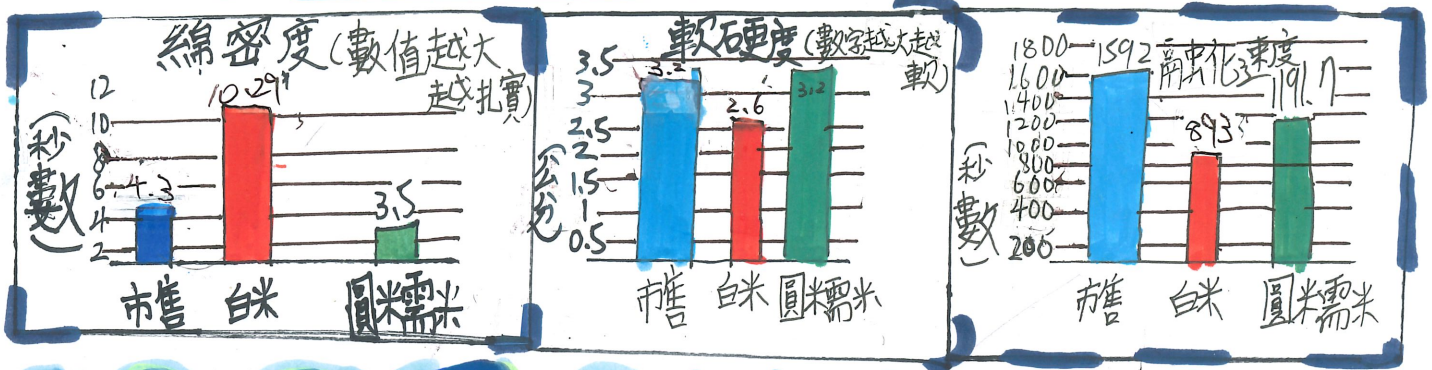 綿密度(數值越大
越扎實)
12
10
8
6
4
2
(秒數)
4.3
10.29
3.5
市售
白米
圓糯米
軟硬度(數字越大越
軟)
3.5
3
2.5
2
1.5
1
0.5
(公分)
3.2
2.6
3.2
市售
白米
圓糯米
融化速度
1800
1600
1400
1200
1000
800
600
400
200
(秒數)
1592
893
1191.7
市售
白米
圓糯米